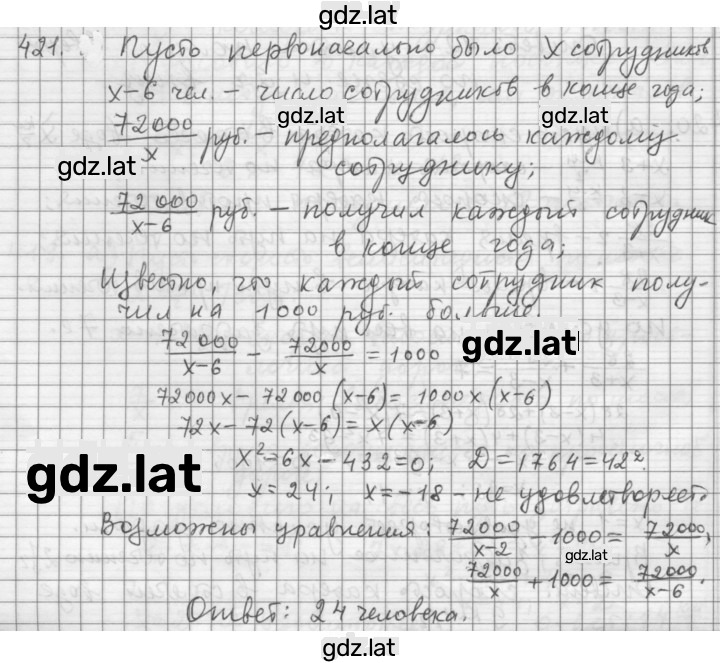 gdz.lat
421. Пусть первоначально было x сотрудников
x-6 чел. – число сотрудников в конце года;
gdz.lat gdz.lat
72000/x руб. – предполагалось каждому
gdz.lat
сотруднику;
72000/(x-6) руб. – получил каждый сотрудник
в конце года;
Известно, что каждый сотрудник полу-
чил на 1000 руб. больше.
72000/(x-6) - 72000/x = 1000
gdz.lat
72000x - 72000(x-6) = 1000x(x-6)
72x - 72(x-6) = x(x-6)
gdz.lat
x²-6x-432=0; D=1764=42².
x=24; x=-18 – не удовлетворяет.
Возможны уравнения: 72000/(x-2) - 1000 = 72000/x,
gdz.lat
72000/x + 1000 = 72000/(x-6).
Ответ: 24 человека.
gdz.lat